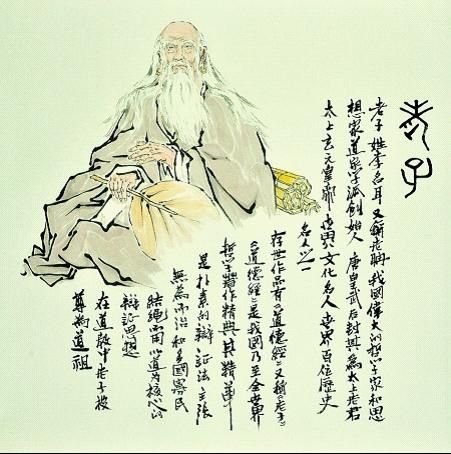 老子
老子 姓李名耳 又稱老聃 我國偉大的哲学家和思
想家道家学派創始人 唐皇武后封其為太上老君
太上玄元皇 世界文化名人 世界百位歷史
名人之一
存世作品有《道德經》又稱《老子》
《道德經》是我國乃至全世界
哲学著作精典 其精華
是朴素的辯証法 主張
無為而治 和 國寡民
結繩而用 以道為核心的
辯証思想
在道教中老子被
尊為道祖